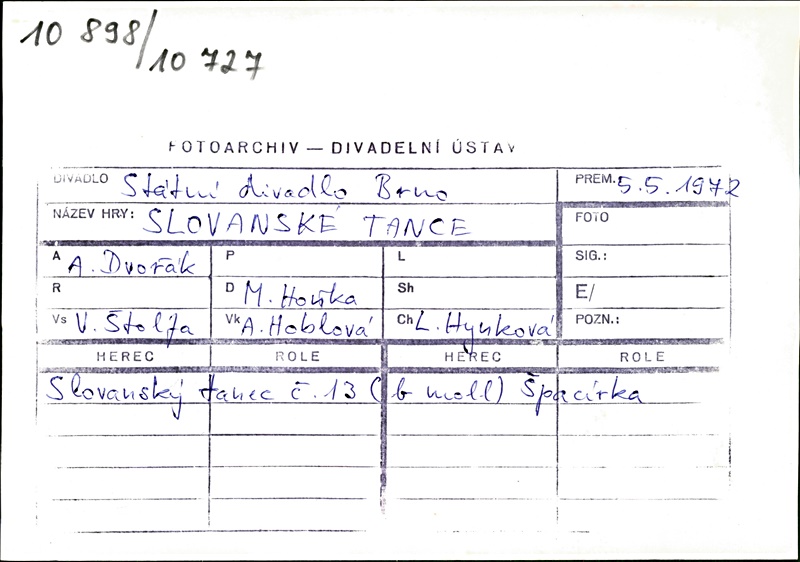 10 898/
10 727
FOTOARCHIV — DIVADELNÍ ÚSTAV
DIVADLO Státní divadlo Brno PREM. 5.5.1972
NÁZEV HRY: SLOVANSKÉ TANCE FOTO
A A. Dvořák P L SIG.:
R D M. Houska Sh E/
Vs V. Štolfa Vk A. Hoblová Ch L. Hynková POZN.:
HEREC ROLE HEREC ROLE
Slovanský tanec č. 13 (b moll) Špacírka